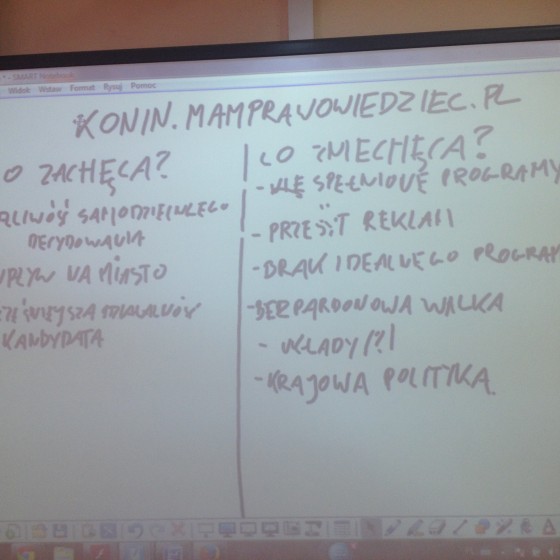 SMART Notebook
Widok Wstaw Format Rysuj Pomoc
KONIN.MAMPRAWOWIEDZIEC.PL
O ZACHĘCA?
LIWOŚĆ SAMODZIELNEGO
DECYDOWANIA
WPŁYW NA MIASTO
KANDYDATA
CO ZNIECHĘCA?
- NIE SPEŁNIONE PROGRAMY
- PRZESYT REKLAM
- BRAK IDEALNEGO PROGRAM
- BEZPARDONOWA WALKA
- UKŁADY /?/
- KRAJOWA POLITYKA